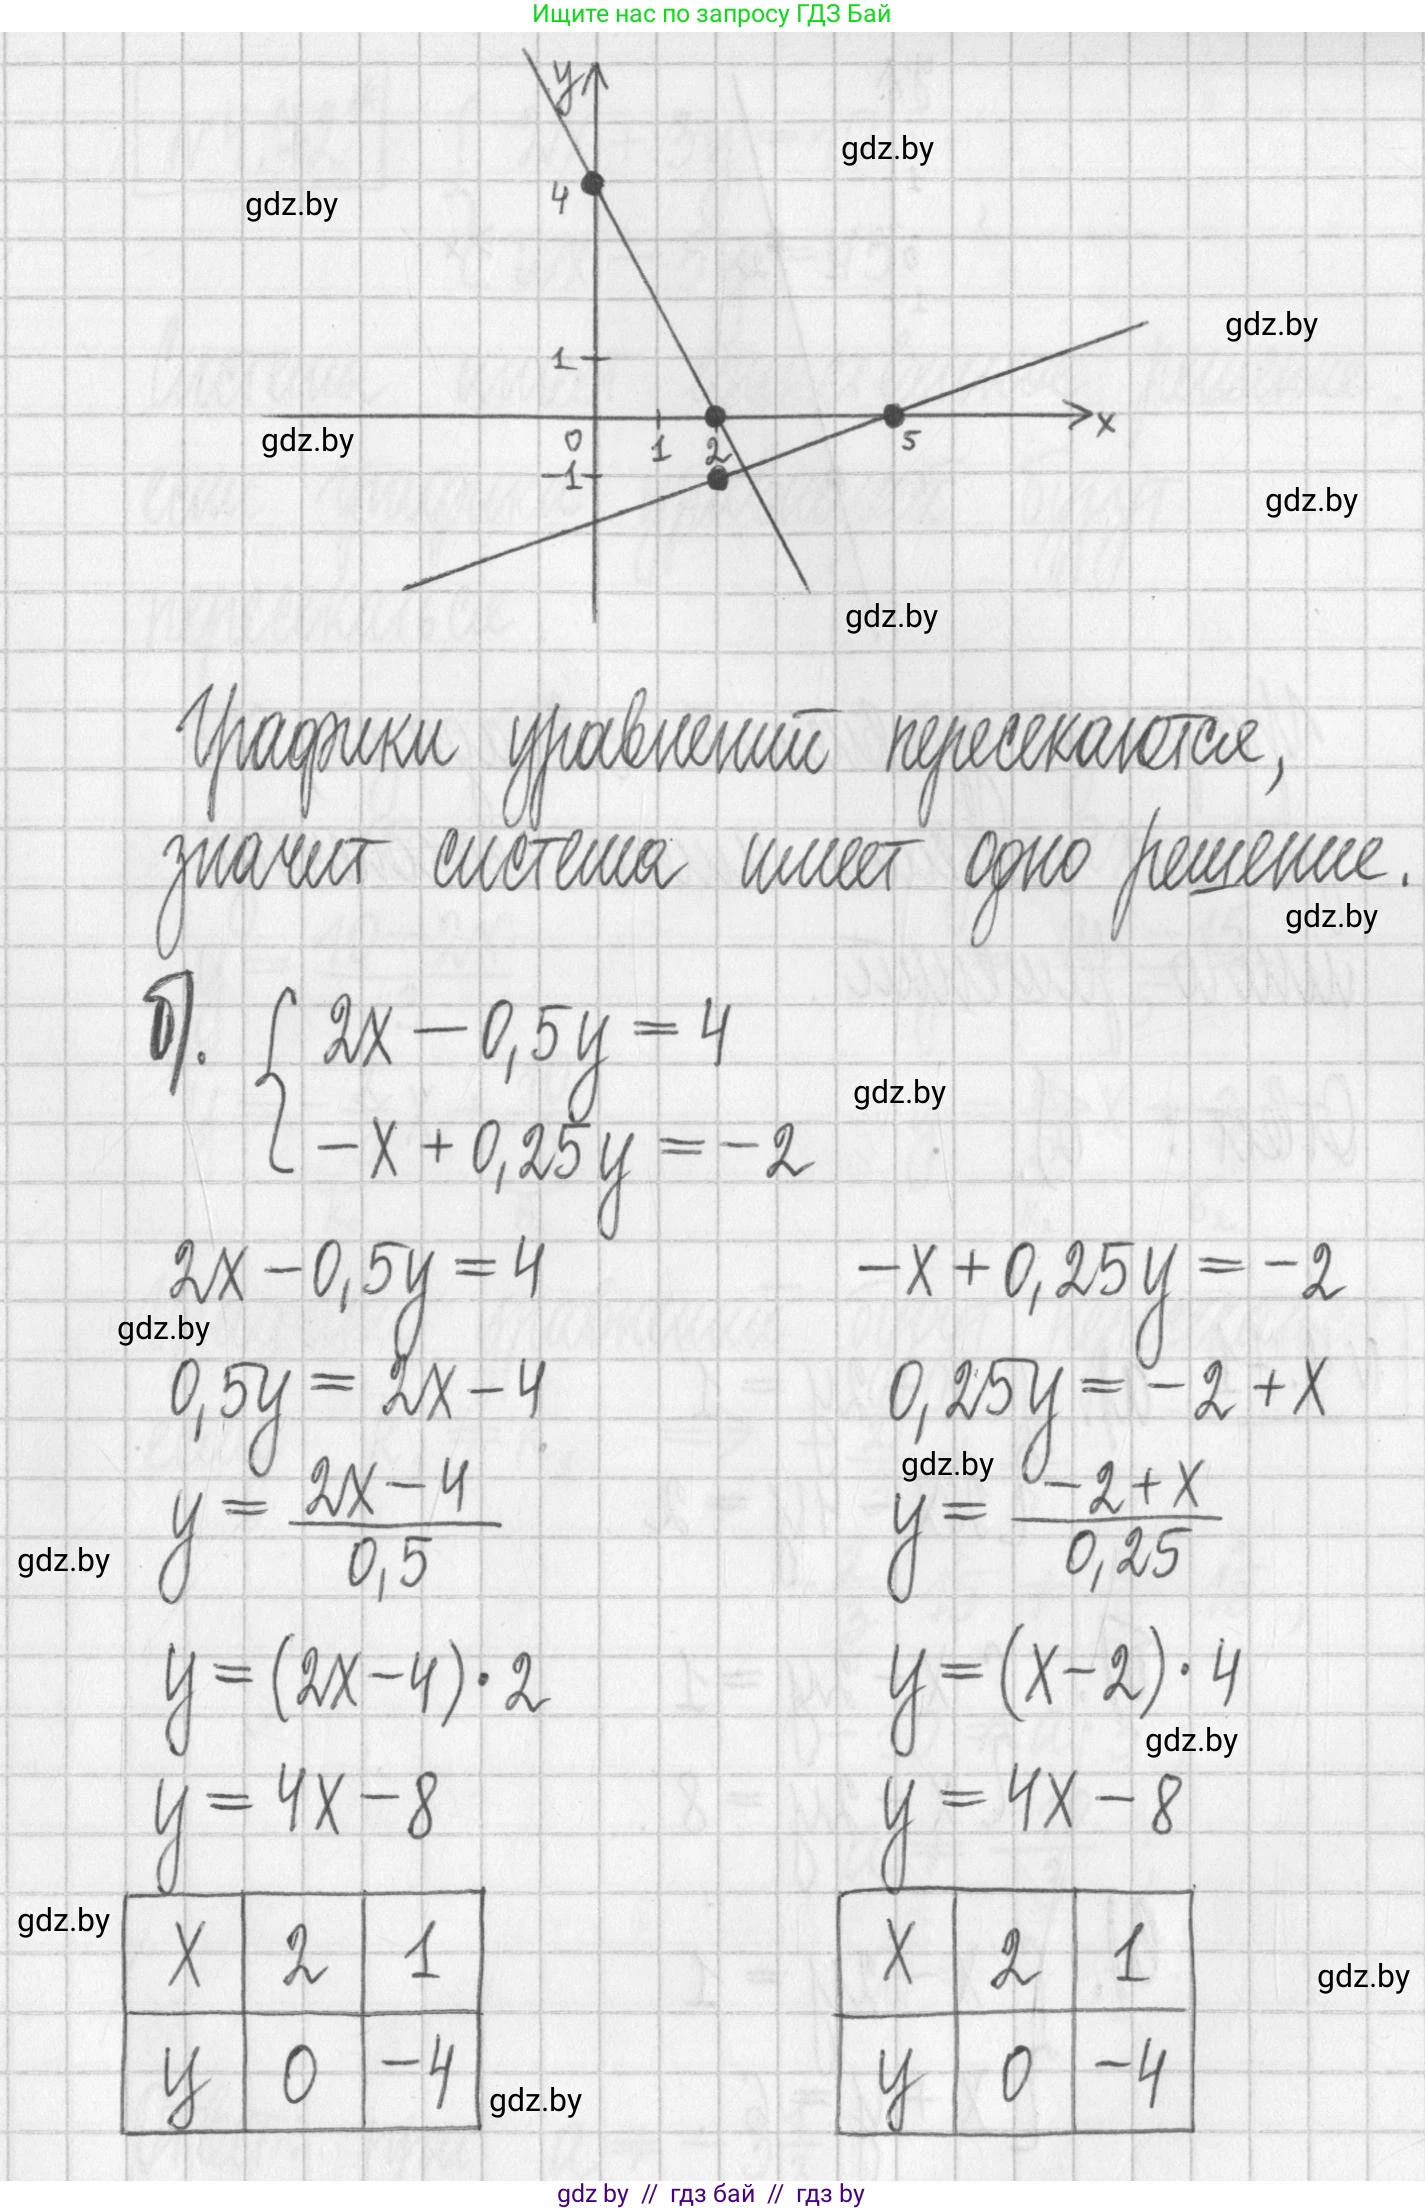 Ищите нас по запросу ГДЗ Бай
y
gdz.by
4
gdz.by
gdz.by
1
x
gdz.by
0 1 2 5
-1
gdz.by
gdz.by
Графики уравнений пересекаются,
значит система имеет одно решение.
gdz.by
б). { 2x - 0,5y = 4
-x + 0,25y = -2
gdz.by
2x - 0,5y = 4 -x + 0,25y = -2
gdz.by
0,5y = 2x - 4 0,25y = -2 + x
gdz.by
y = (2x - 4)/0,5 y = (-2 + x)/0,25
gdz.by
y = (2x - 4) · 2 y = (x - 2) · 4
gdz.by
y = 4x - 8 y = 4x - 8
gdz.by
x 2 1 x 2 1
gdz.by
y 0 -4 y 0 -4
gdz.by
gdz by // гдз бай // гдз by